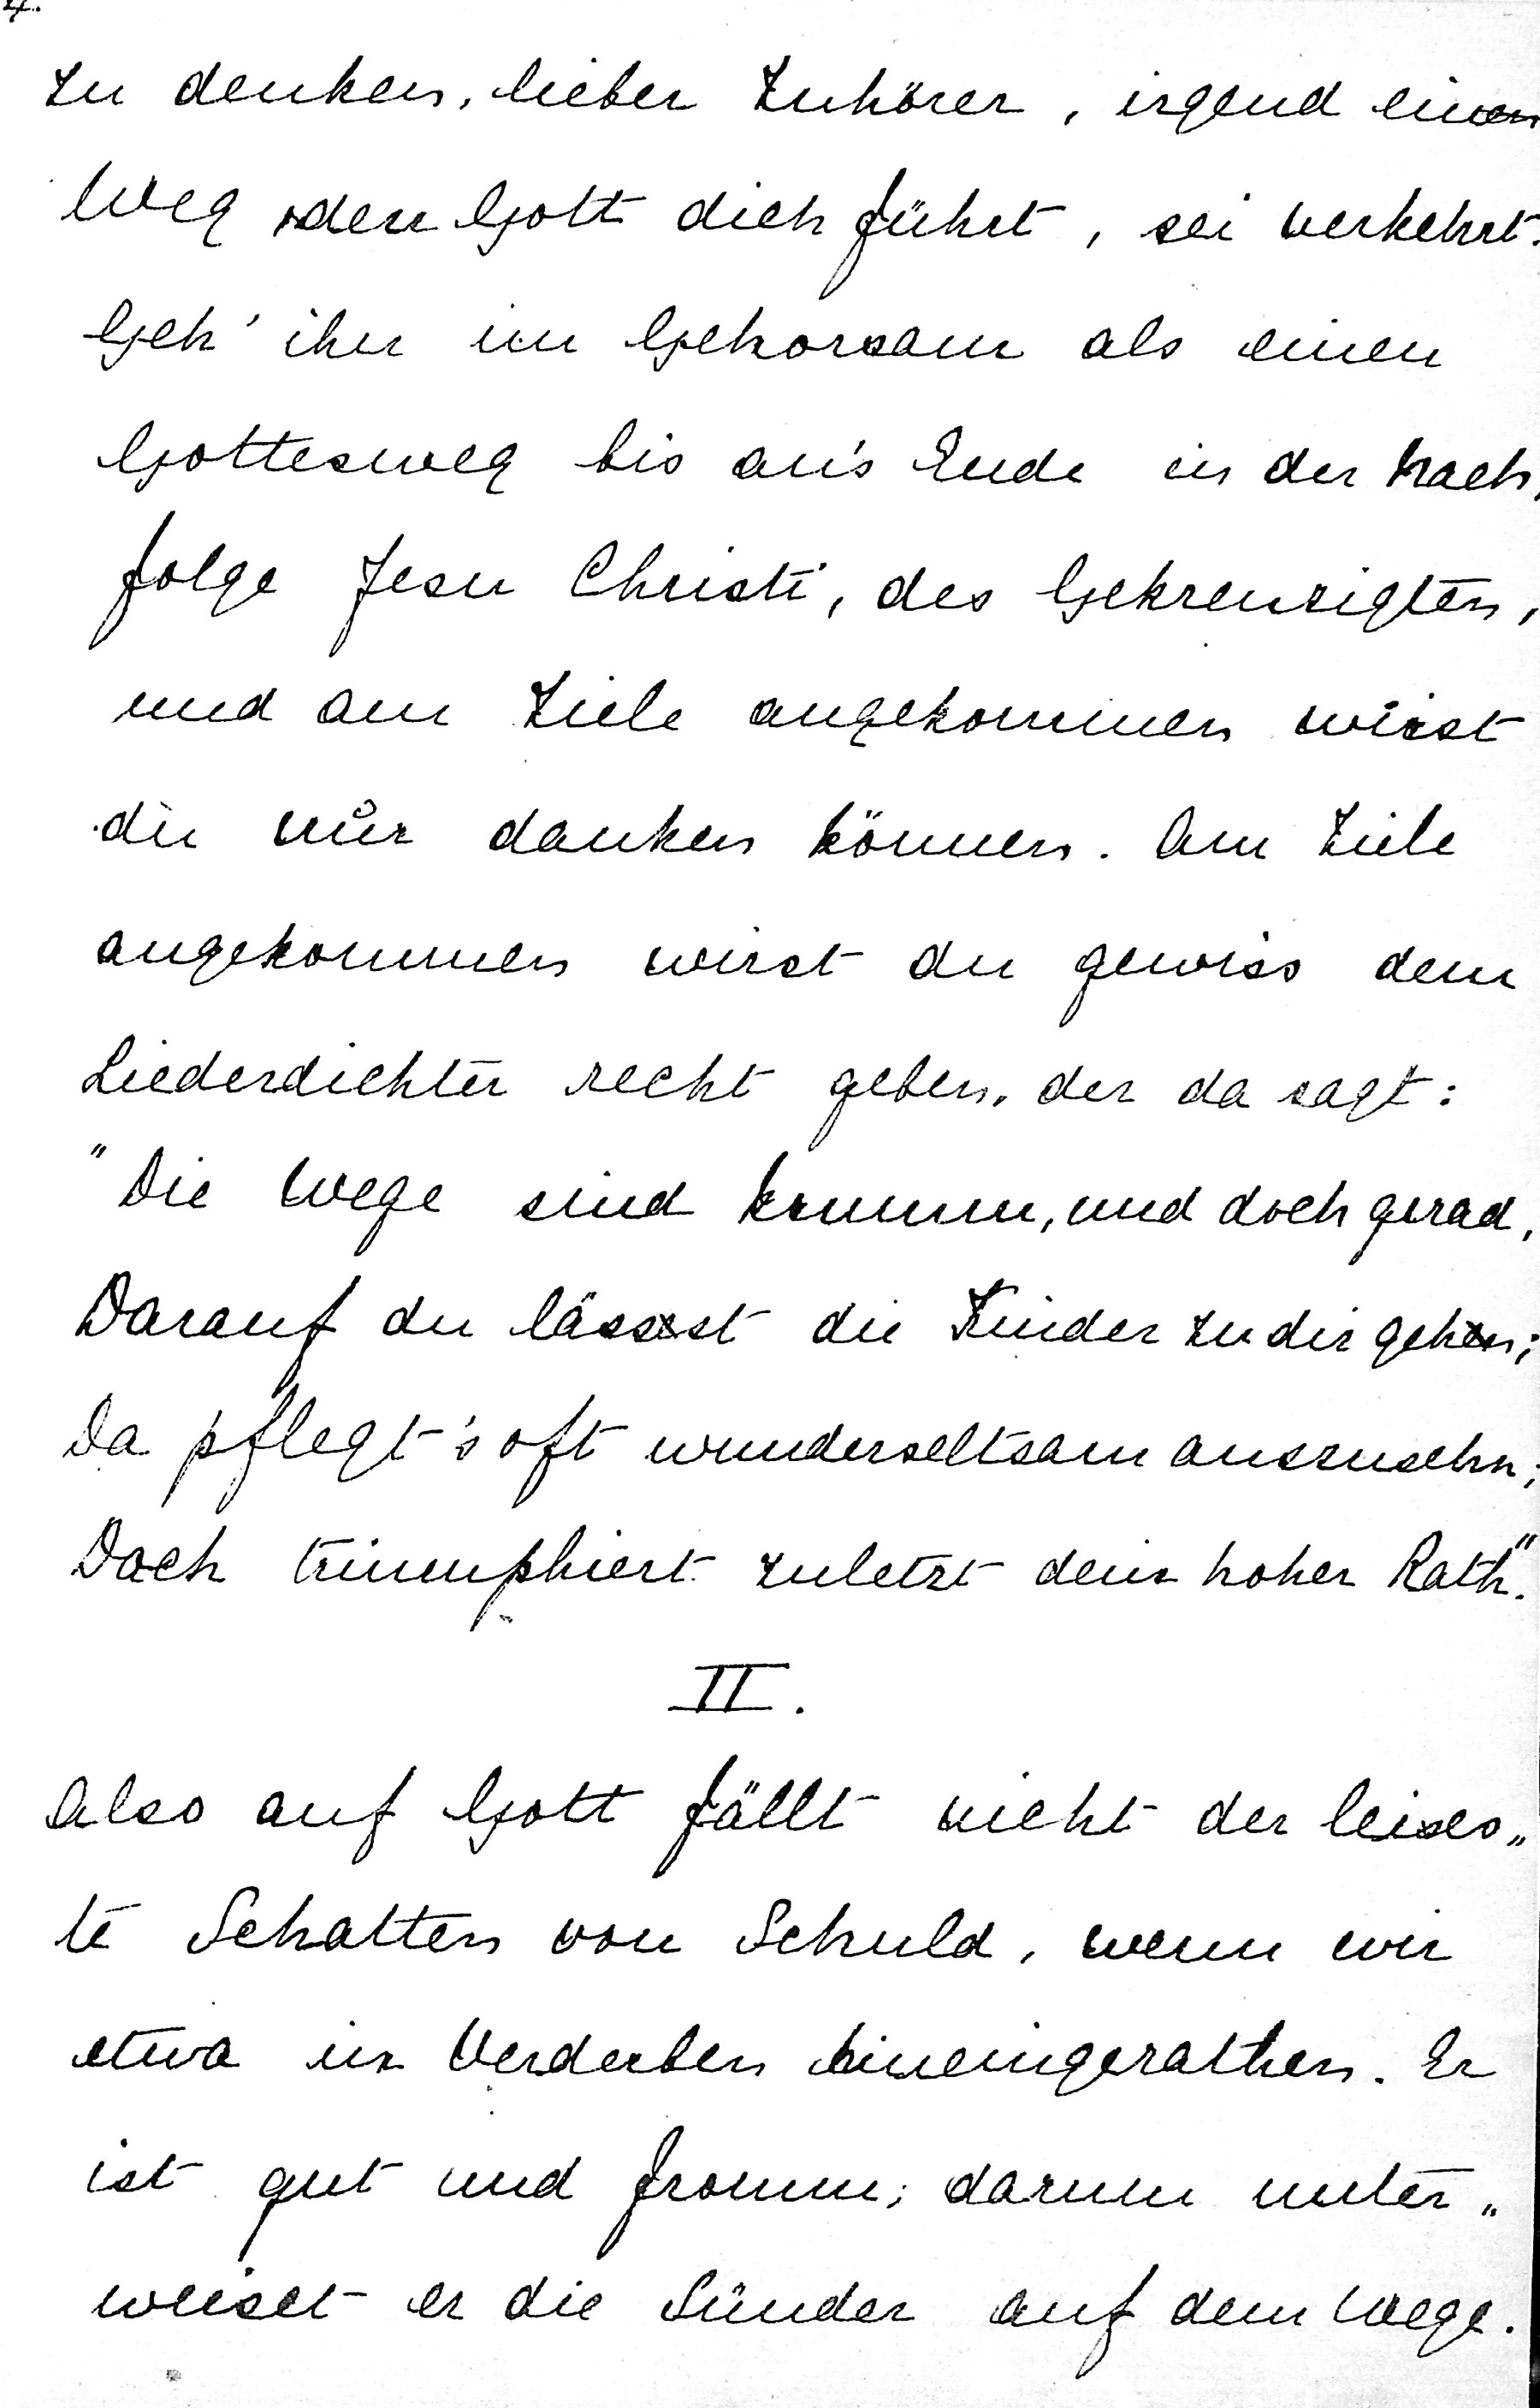 4.
zu denken, lieber Zuhörer, irgend einen
Weg den Gott dich führt, sei verkehrt.
Geh' ihn im Gehorsam als einen
Gottesweg bis an's Ende in der Nach,
folge Jesu Christi, des Gekreuzigten,
und am Ziele angekommen wirst
du nur danken können. Am Ziele
angekommen wirst du gewiss dem
Liederdichter recht geben, der da sagt:
"Die Wege sind krumm, und doch gerad,
Darauf du lässst die Kinder zu dir gehen;
Da pflegt's oft wunderseltsam auszusehn;
Doch triumphiert zuletzt dein hoher Rath."
II.
Also auf Gott fällt nicht der leises„
te Schatten von Schuld, wenn wir
etwa in Verderben hineingerathen. Er
ist gut und fromm; darum unter„
weiset er die Sünder auf dem Wege.